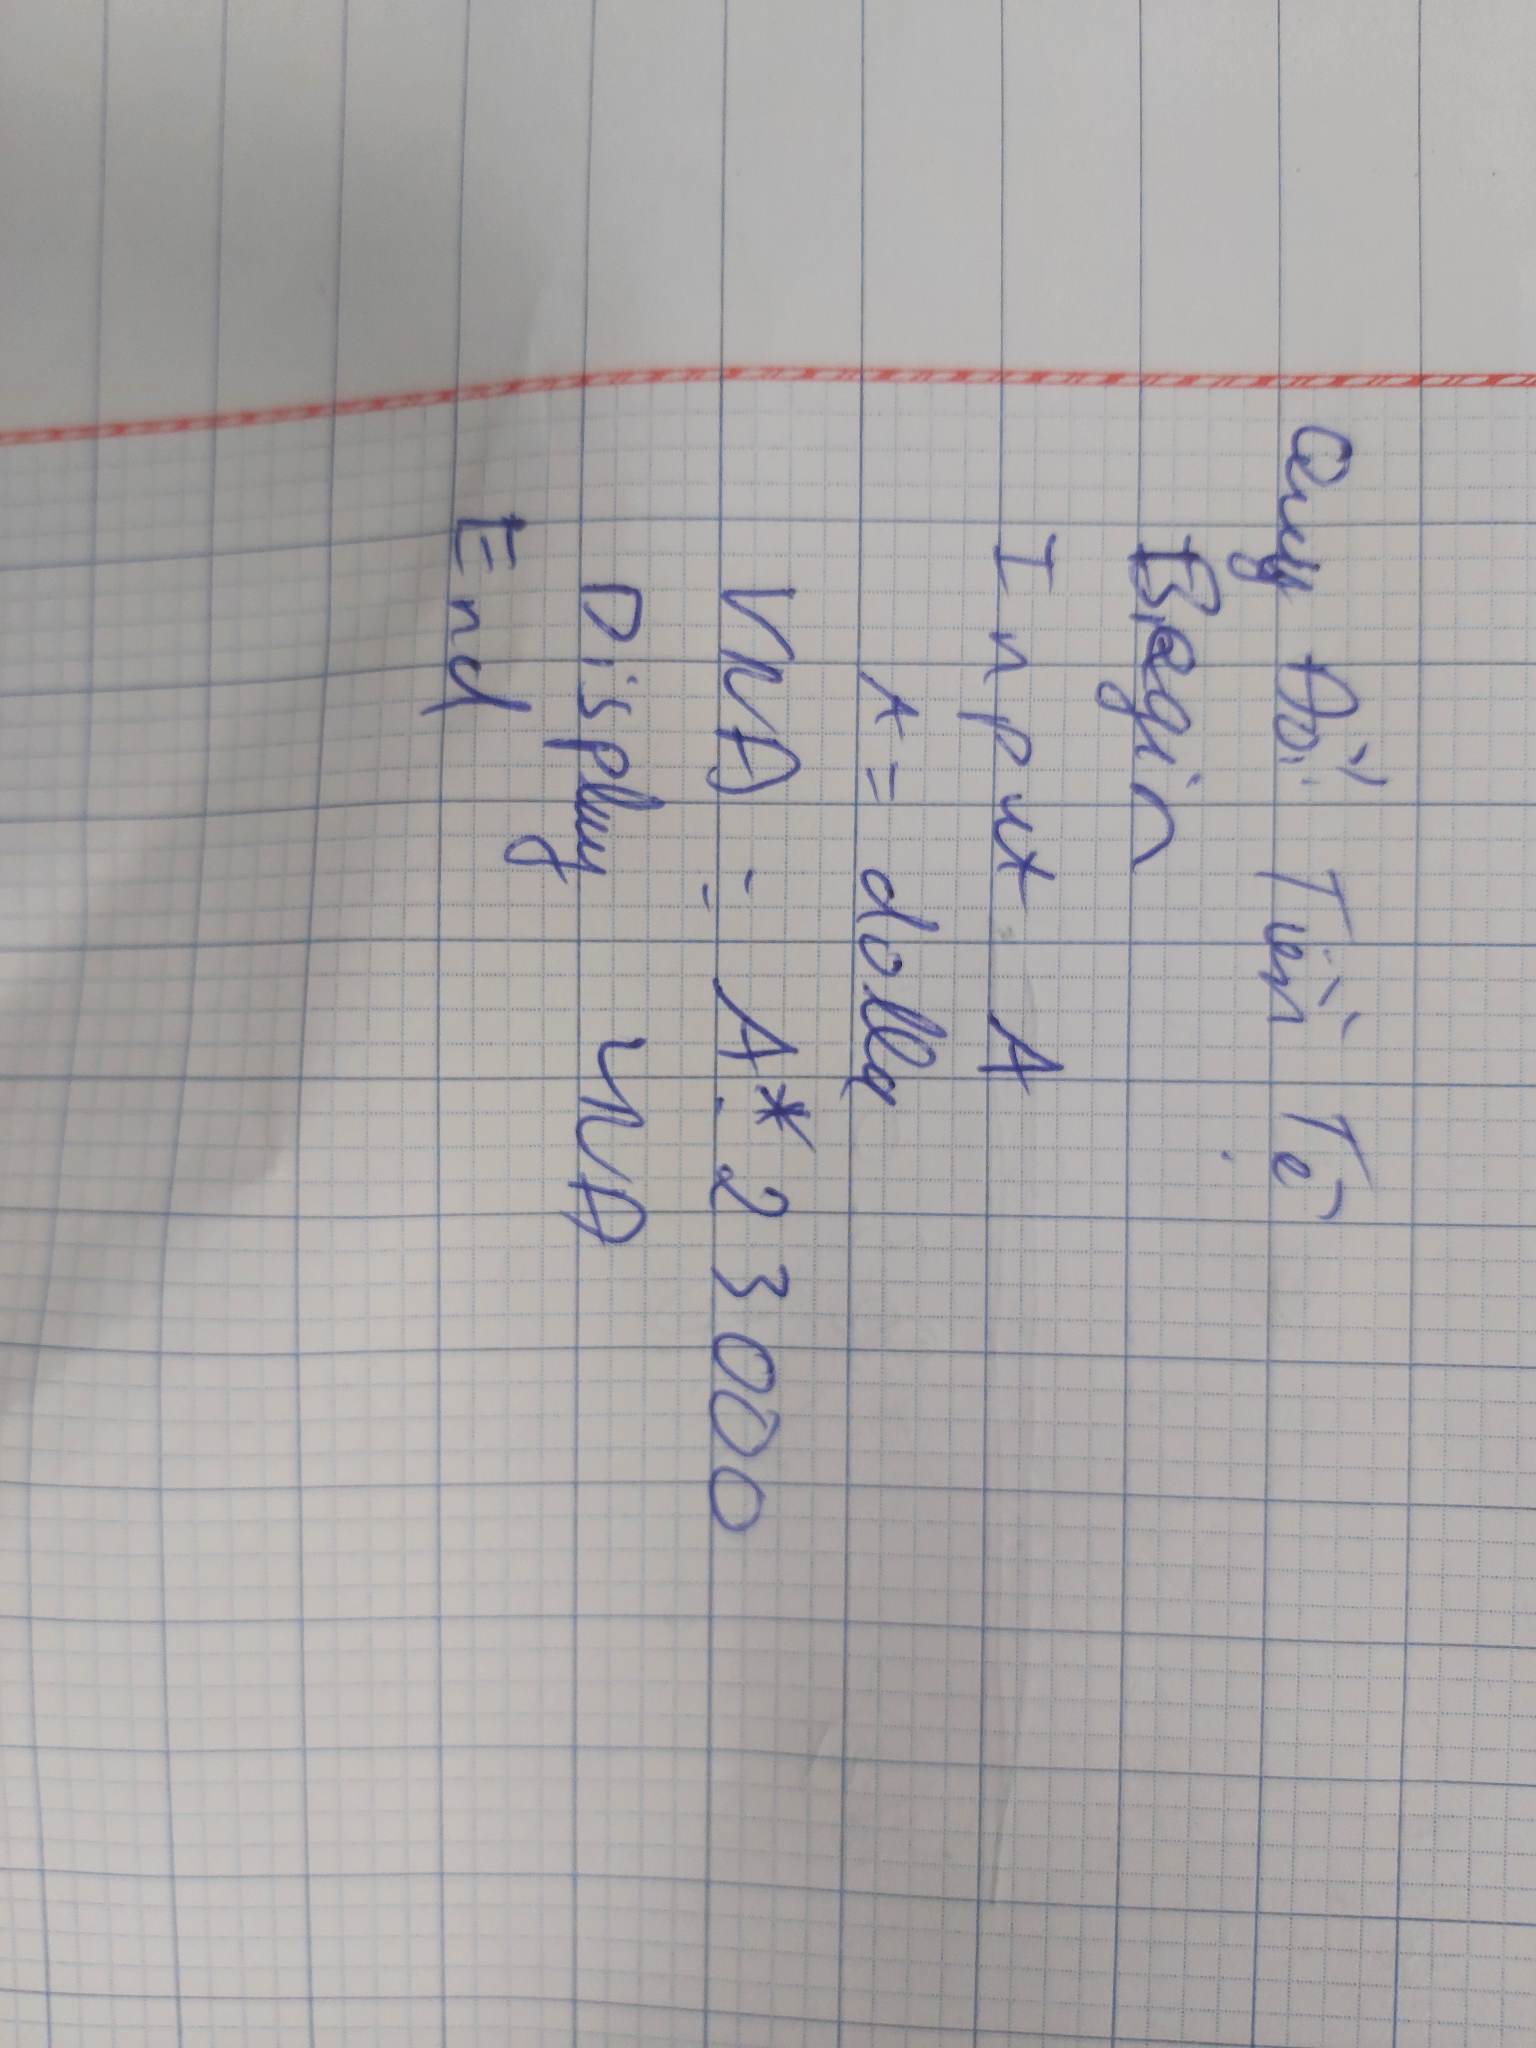 Quy Đổi Tiền Tệ
Begin
Input A
A = dolla
VNĐ = A * 23000
Display VNĐ
End